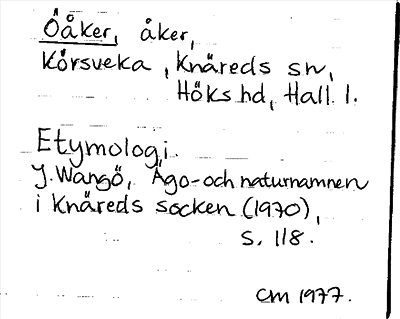 Öåker, åker,
Körsveka, Knäreds sn,
Höks hd, Hall. l.
Etymologi.
J. Wangö, Ägo- och naturnamnen
i Knäreds socken (1970),
s. 118.
CM 1977.